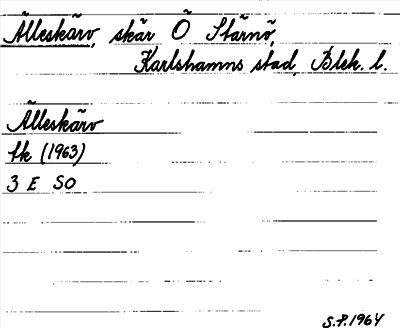 Älleskärv, skär Ö Stärnö,
Karlshamns stad, Blek. l.
Älleskärv
Sk (1963)
3 E SO
S.P. 1964